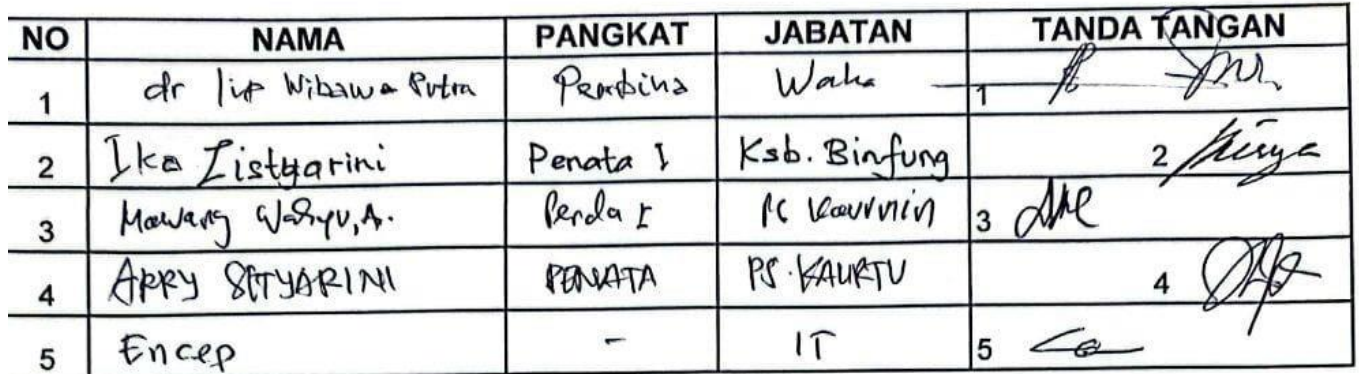 NO NAMA PANGKAT JABATAN TANDA TANGAN
1 dr Iip Wibawa Putra Pembina Waka 1
2 Ika Listyarini Penata I Ksb. Binfung 2
3 Mawang Wahyu, A. Penda I PS Kaurmin 3
4 ARRY SETYARINI PENATA PS. KAURTU 4
5 Encep - IT 5